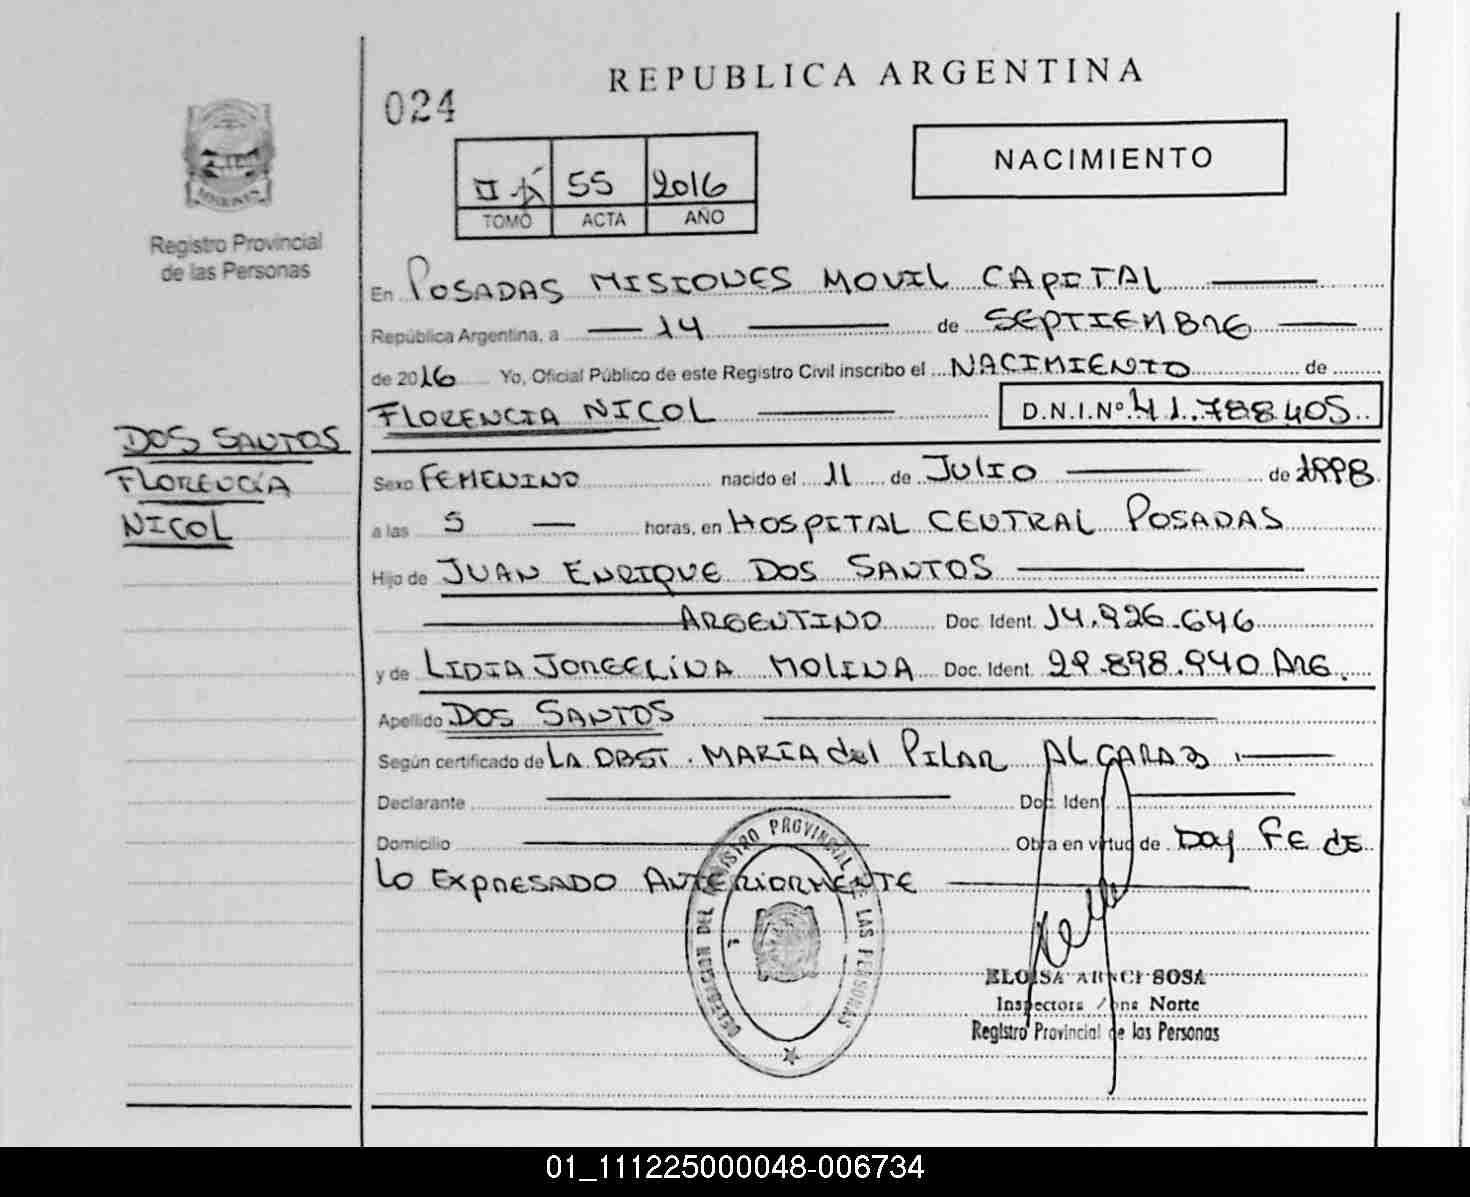 REPUBLICA ARGENTINA
024
NACIMIENTO
II 55 2016
TOMO ACTA AÑO
Registro Provincial
de las Personas
En POSADAS MISIONES MOVIL CAPITAL
República Argentina, a 14 de SEPTIEMBRE
de 2016 Yo, Oficial Público de este Registro Civil inscribo el NACIMIENTO de
FLORENCIA NICOL D.N.I.Nº 41.788.405
DOS SANTOS
FLORENCIA
NICOL
Sexo FEMENINO nacido el 11 de JULIO de 1998
a las 5 horas, en HOSPITAL CENTRAL POSADAS
Hijo de JUAN ENRIQUE DOS SANTOS
ARGENTINO Doc. Ident. 14.926.646
y de LIDIA JORGELINA MOLINA Doc. Ident. 29.898.940 ARG.
Apellido DOS SANTOS
Según certificado de LA OBST. MARIA del PILAR ALGARAZ
Declarante Doc. Ident
Domicilio Obra en virtud de Doy FE dE
Lo EXPRESADO ANTERIORMENTE
DELEGACION DEL REGISTRO PROVINCIAL DE LAS PERSONAS
ELOISA ARACI SOSA
Inspectora Zona Norte
Registro Provincial de las Personas
01_111225000048-006734